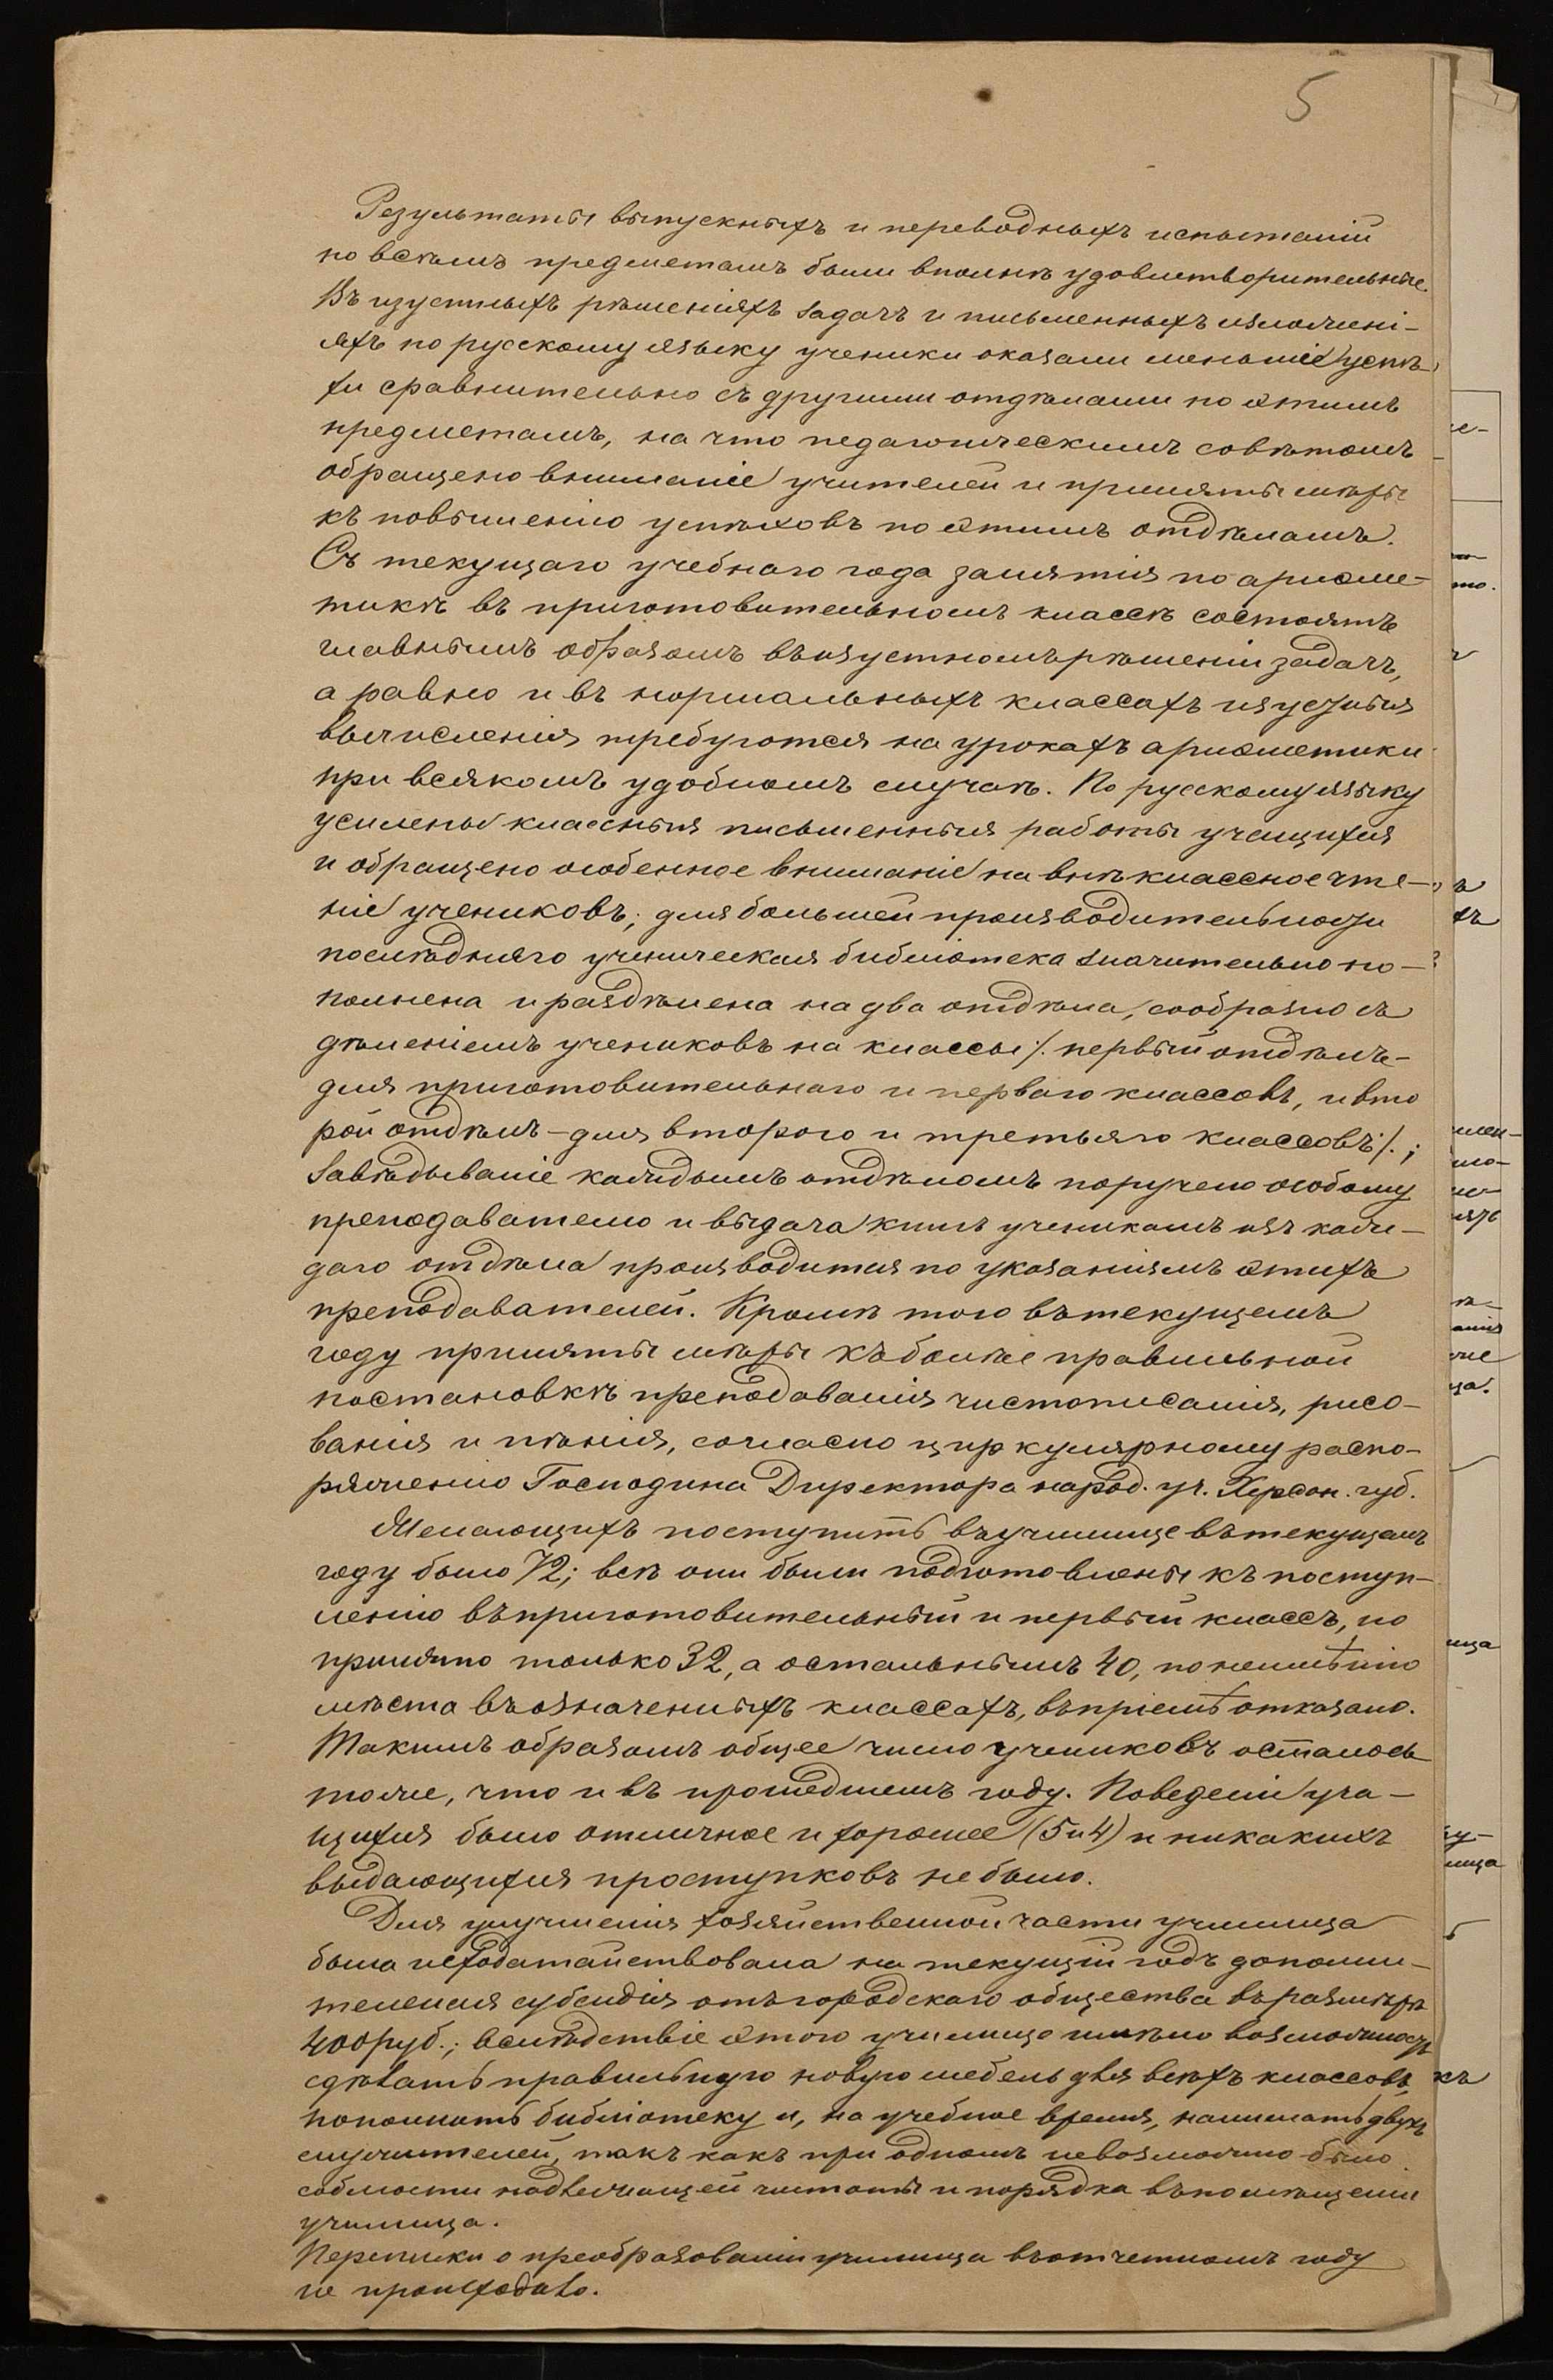 5
Результаты выпускныхъ и переводныхъ испытаній
по всѣмъ предметамъ были вполнѣ удовлетворительные.
Въ изустныхъ рѣшеніяхъ задачъ и письменныхъ изложені-
яхъ по русскому языку ученики оказали меньшіе успѣ-
хи сравнительно съ другими отдѣлами по этимъ
предметамъ, на что педагогическимъ совѣтомъ
обращено вниманіе учителей и приняты мѣры
къ повышенію успѣховъ по этимъ отдѣламъ.
Съ текущаго учебнаго года занятія по ариѳме-
тикѣ въ приготовительномъ классѣ состоятъ
главнымъ образомъ въ изустномъ рѣшеніи задачъ,
а равно и въ нормальныхъ классахъ изустныя
вычисленія требуются на урокахъ ариѳметики
при всякомъ удобномъ случаѣ. По русскому языку
усилены классныя письменныя работы учащихся
и обращено особенное вниманіе на внѣклассное чте-
ніе учениковъ; для большей производительности
послѣдняго ученическая библіотека значительно по-
полнена и раздѣлена на два отдѣла, сообразно съ
дѣленіемъ учениковъ на классы /. первый отдѣлъ-
для приготовительнаго и перваго классовъ, и вто
рой отдѣлъ - для второго и третьяго классовъ /.;
Завѣдываніе каждымъ отдѣломъ поручено особому
преподавателю и выдача книгъ ученикамъ изъ каж-
даго отдѣла производится по указаніямъ этихъ
преподавателей. Кромѣ того въ текущемъ
году приняты мѣры къ болѣе правильной
постановкѣ преподаванія чистописанія, рисо-
ванія и пѣнія, согласно циркулярному распо-
ряженію Господина Директора народ. уч. Херсон. губ.
Желающихъ поступить въ училище въ текущемъ
году было 72; всѣ они были подготовлены къ поступ-
ленію въ приготовительный и первый классъ, но
принято только 32, а остальнымъ 40, по неимѣнію
мѣста въ означенныхъ классахъ, въ пріемѣ отказано.
Такимъ образомъ общее число учениковъ осталось
тоже, что и въ прошедшемъ году. Поведеніе уча-
щихся было отличное и хорошее (5 и 4) и никакихъ
выдающихся проступковъ не было.
Для улучшенія хозяйственной части училища
была исходатайствована на текущій годъ дополни-
тельная субсидія отъ городскаго общества въ размѣрѣ
400 руб.; вслѣдствіе этого училище имѣло возможность
сдѣлать правильную новую мебель для всѣхъ классовъ,
пополнить библіотеку и, на учебное время, нанимать двухъ
служителей, такъ какъ при одномъ невозможно было
соблюсти надлежащей чистоты и порядка въ помѣщеніи
училища.
Переписки о преобразованіи училища въ отчетномъ году
не происходило.